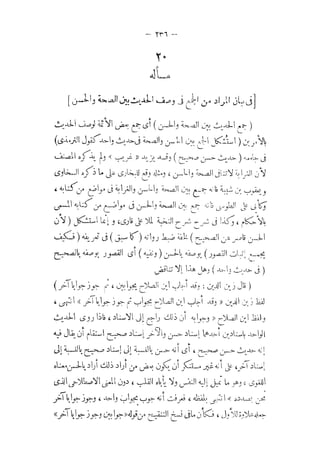 — ٢٣٦ —
٢٠
مسألة
[ في بيان المراد من الجمع في وصف الحديث بين الصحة والحسن ]
( جمع الحديث بين الصحة والحسن ) أي جمع بعض الأئمة لوصف الحديث
بالأمرين ( استشكل الجمع بين الحسن والصحة في حديث واحد كقول الترمذي )
في جامعه ( حديث حسن صحيح ) وقد يزيد « غريب » ولم يذكره المصنف
لأن الغرابة لا تنافي الصحة والحسن ، ومثله وقع للبخاري على ما ذكره السخاوي
وليعقوب بن شيبة فإنه جمع بين الصحة والحسن والغرابة في مواضع من كتابه ،
وكأبي علي الطوسي فإنه جمع بين الصحة والحسن في مواضع من كتابه المسمى
بالأحكام ، وكذا في شرح شرح النخبة لملا علي قاري ، و إنما استشكل ( لأن
الحسن قاصر عن الصحيح ) لخفة ضبط رواته ( كما سبق ) في تعريفه ( فكيف
يجتمع إثبات القصور ) بوصفه بالحسن ( ونفيه ) أي القصور بوصفه بالصحيح
( في حديث واحد ) وهل هذا إلا تناقض
( قال زين الدين : وقد أجاب ابن الصلاح بجوابين ، ثم جوز جوابا آخر )
لفظ زين الدين « وقد أجاب ابن الصلاح بجواب ثم جوز جوابا آخر » انتهى ،
ولفظ ابن الصلاح « وجوابه أن ذلك راجع إلى الإسناد ، فإذا روى الحديث
الواحد بإسنادين أحدهما إسناد حسن والآخر إسناد صحيح استقام أن يقال فيه
إنه حديث حسن صحيح ، أي أنه حسن بالنسبة إلى إسناد صحيح بالنسبة إلى
إسناد آخر ، على أنه غير مستنكر أن يكون بعض من أراد ذلك أراد بالحسن معناه
اللغوي ، وهو ما تميل إليه النفس ولا يأباه القلب ، دون المعنى الاصطلاحي الذي
نحن بصدده » انتهى بلفظه ، فعرفت أنه جوب بجواب واحد ، وجوز جوابا آخر
جعله علاوة للأول ، فكأن ما في نسخ التنقيح من قوله « جوابين وجوز جوابا آخر »